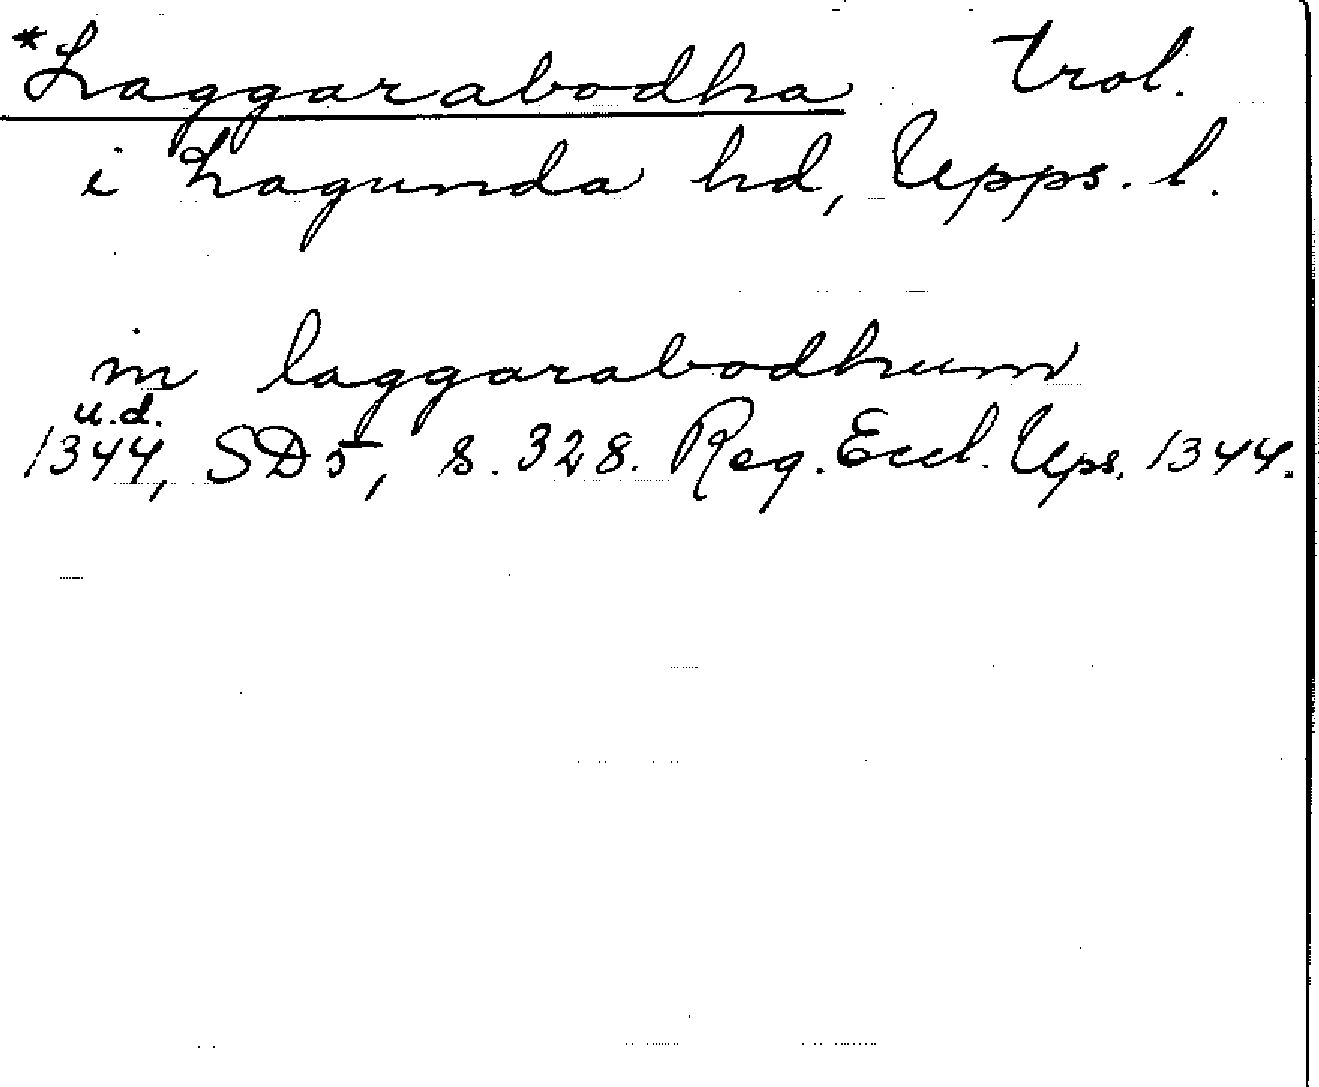 *Laggarabodha Trol.
i Lagunda hd, Upps. l.
in laggarabodhum
u.d.
1344, SD5, s. 328. Reg. Eccl. Ups. 1344.